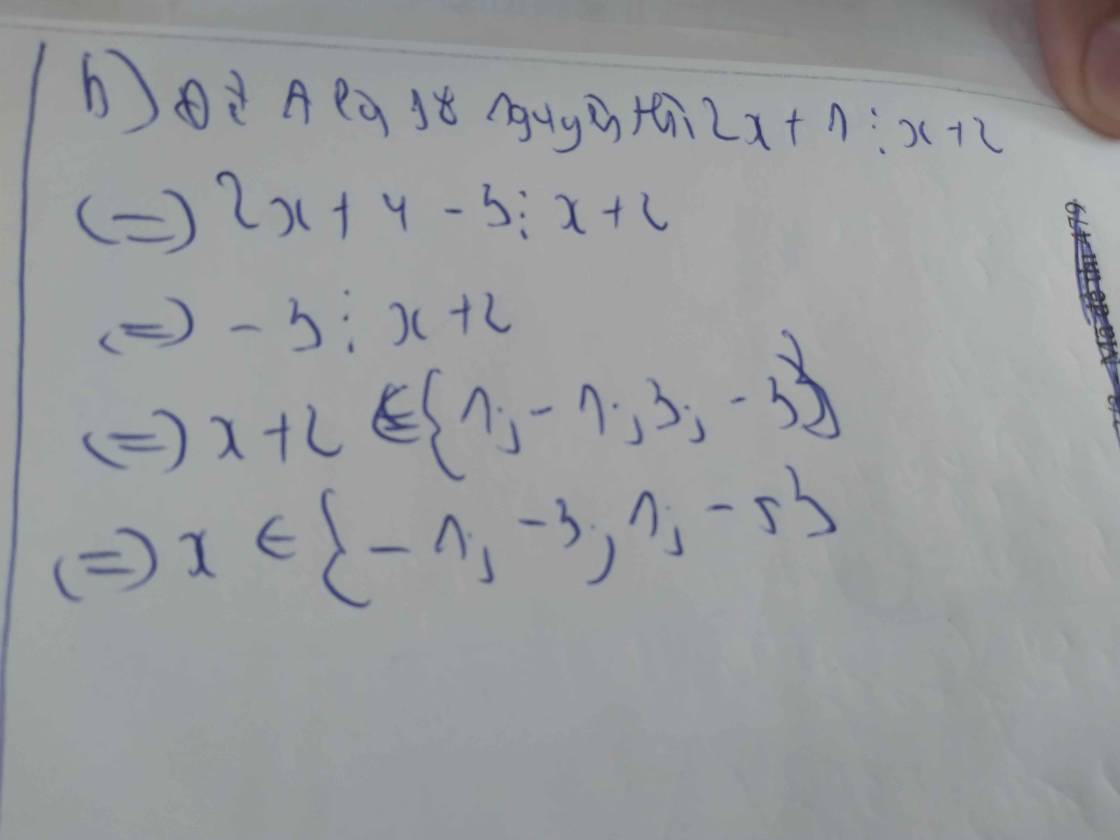 b) Để A là số nguyên thì 2x + 1 ⋮ x + 2
(=) 2x + 4 - 3 ⋮ x + 2
(=) - 3 ⋮ x + 2
(=) x + 2 ∈ {1; - 1; 3; - 3}
(=) x ∈ {- 1; - 3; 1; - 5}
Mã đề thi 479